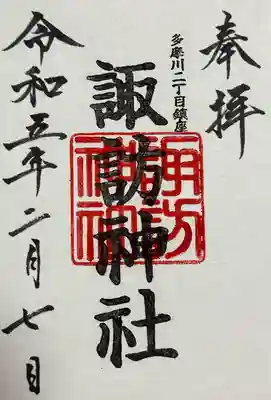 奉拝
多摩川二丁目鎮座
諏訪神社
諏訪神社
令和五年二月七日